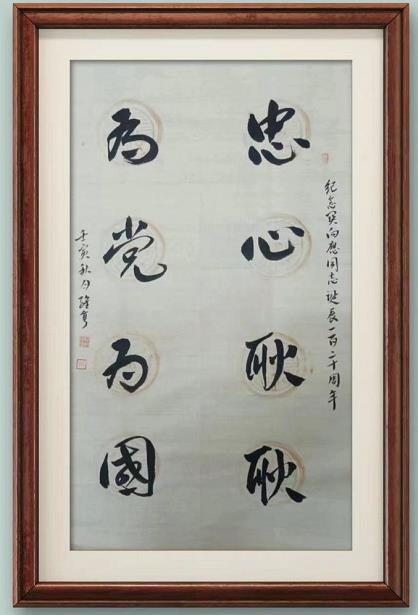 纪念関向應同志诞辰一百二十周年
忠心耿耿
為党為國
壬寅秋月